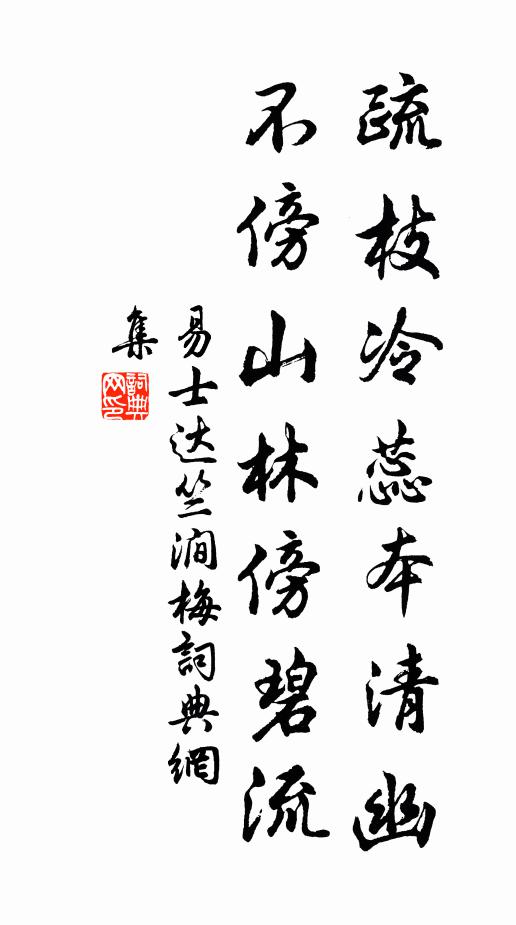 疏枝冷蕊本清幽
不傍山林傍碧流
易士达竺澗梅詞典網
集
詞典
网印